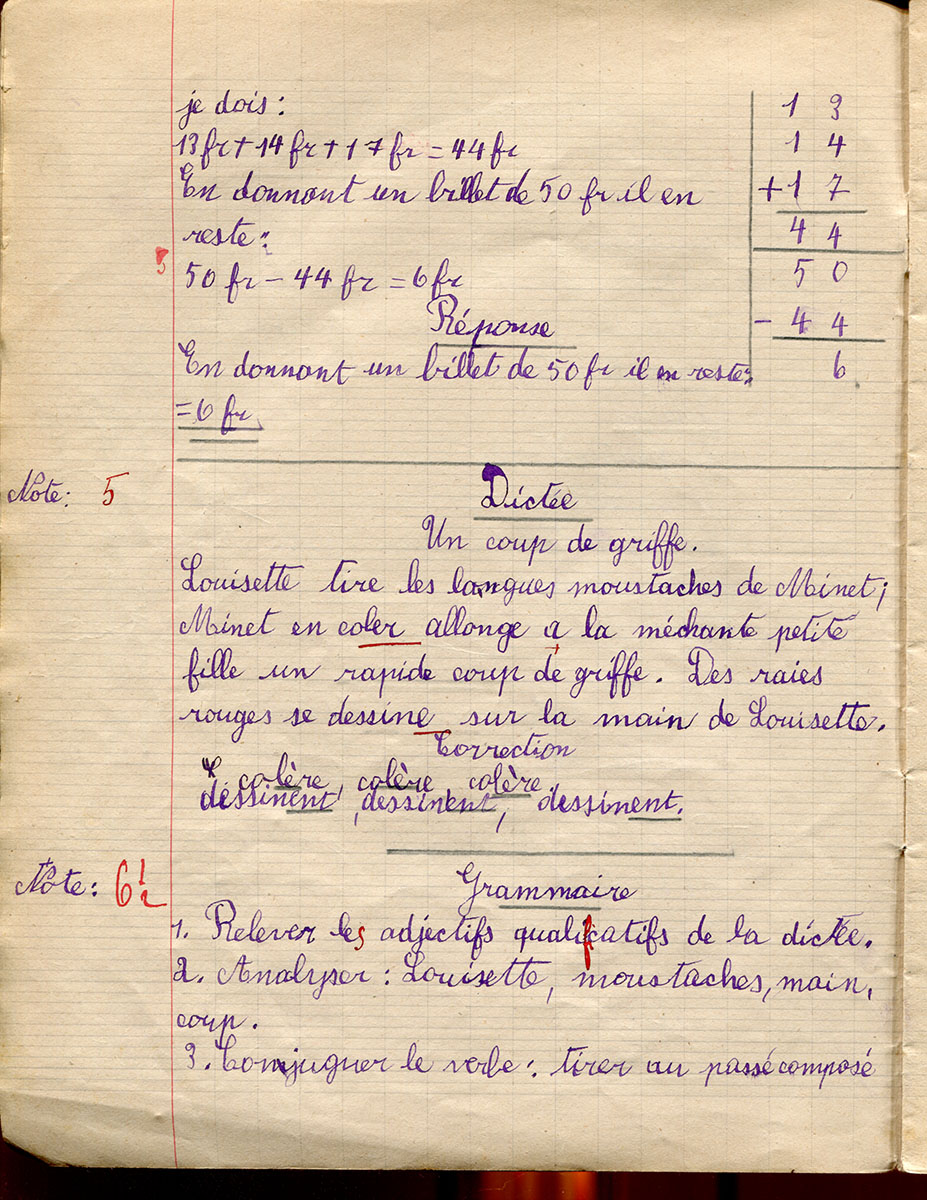 je dois :
13 fr + 14 fr + 17 fr = 44 fr
En donnant un billet de 50 fr il en
reste :
50 fr - 44 fr = 6 fr
Réponse
En donnant un billet de 50 fr il en reste :
= 6 fr
1 3
1 4
+ 1 7
4 4
5 0
- 4 4
6
Note : 5
Dictée
Un coup de griffe.
Louisette tire les longues moustaches de Minet ;
Minet en coler allonge a la méchante petite
fille un rapide coup de griffe. Des raies
rouges se dessine sur la main de Louisette.
Correction
colère colère colère.
dessinent, dessinent, dessinent.
Note : 6 1/2
Grammaire
1. Relever les adjectifs qualificatifs de la dictée.
2. Analyser : Louisette, moustaches, main,
coup.
3. Conjuguer le verbe : tirer au passé composé